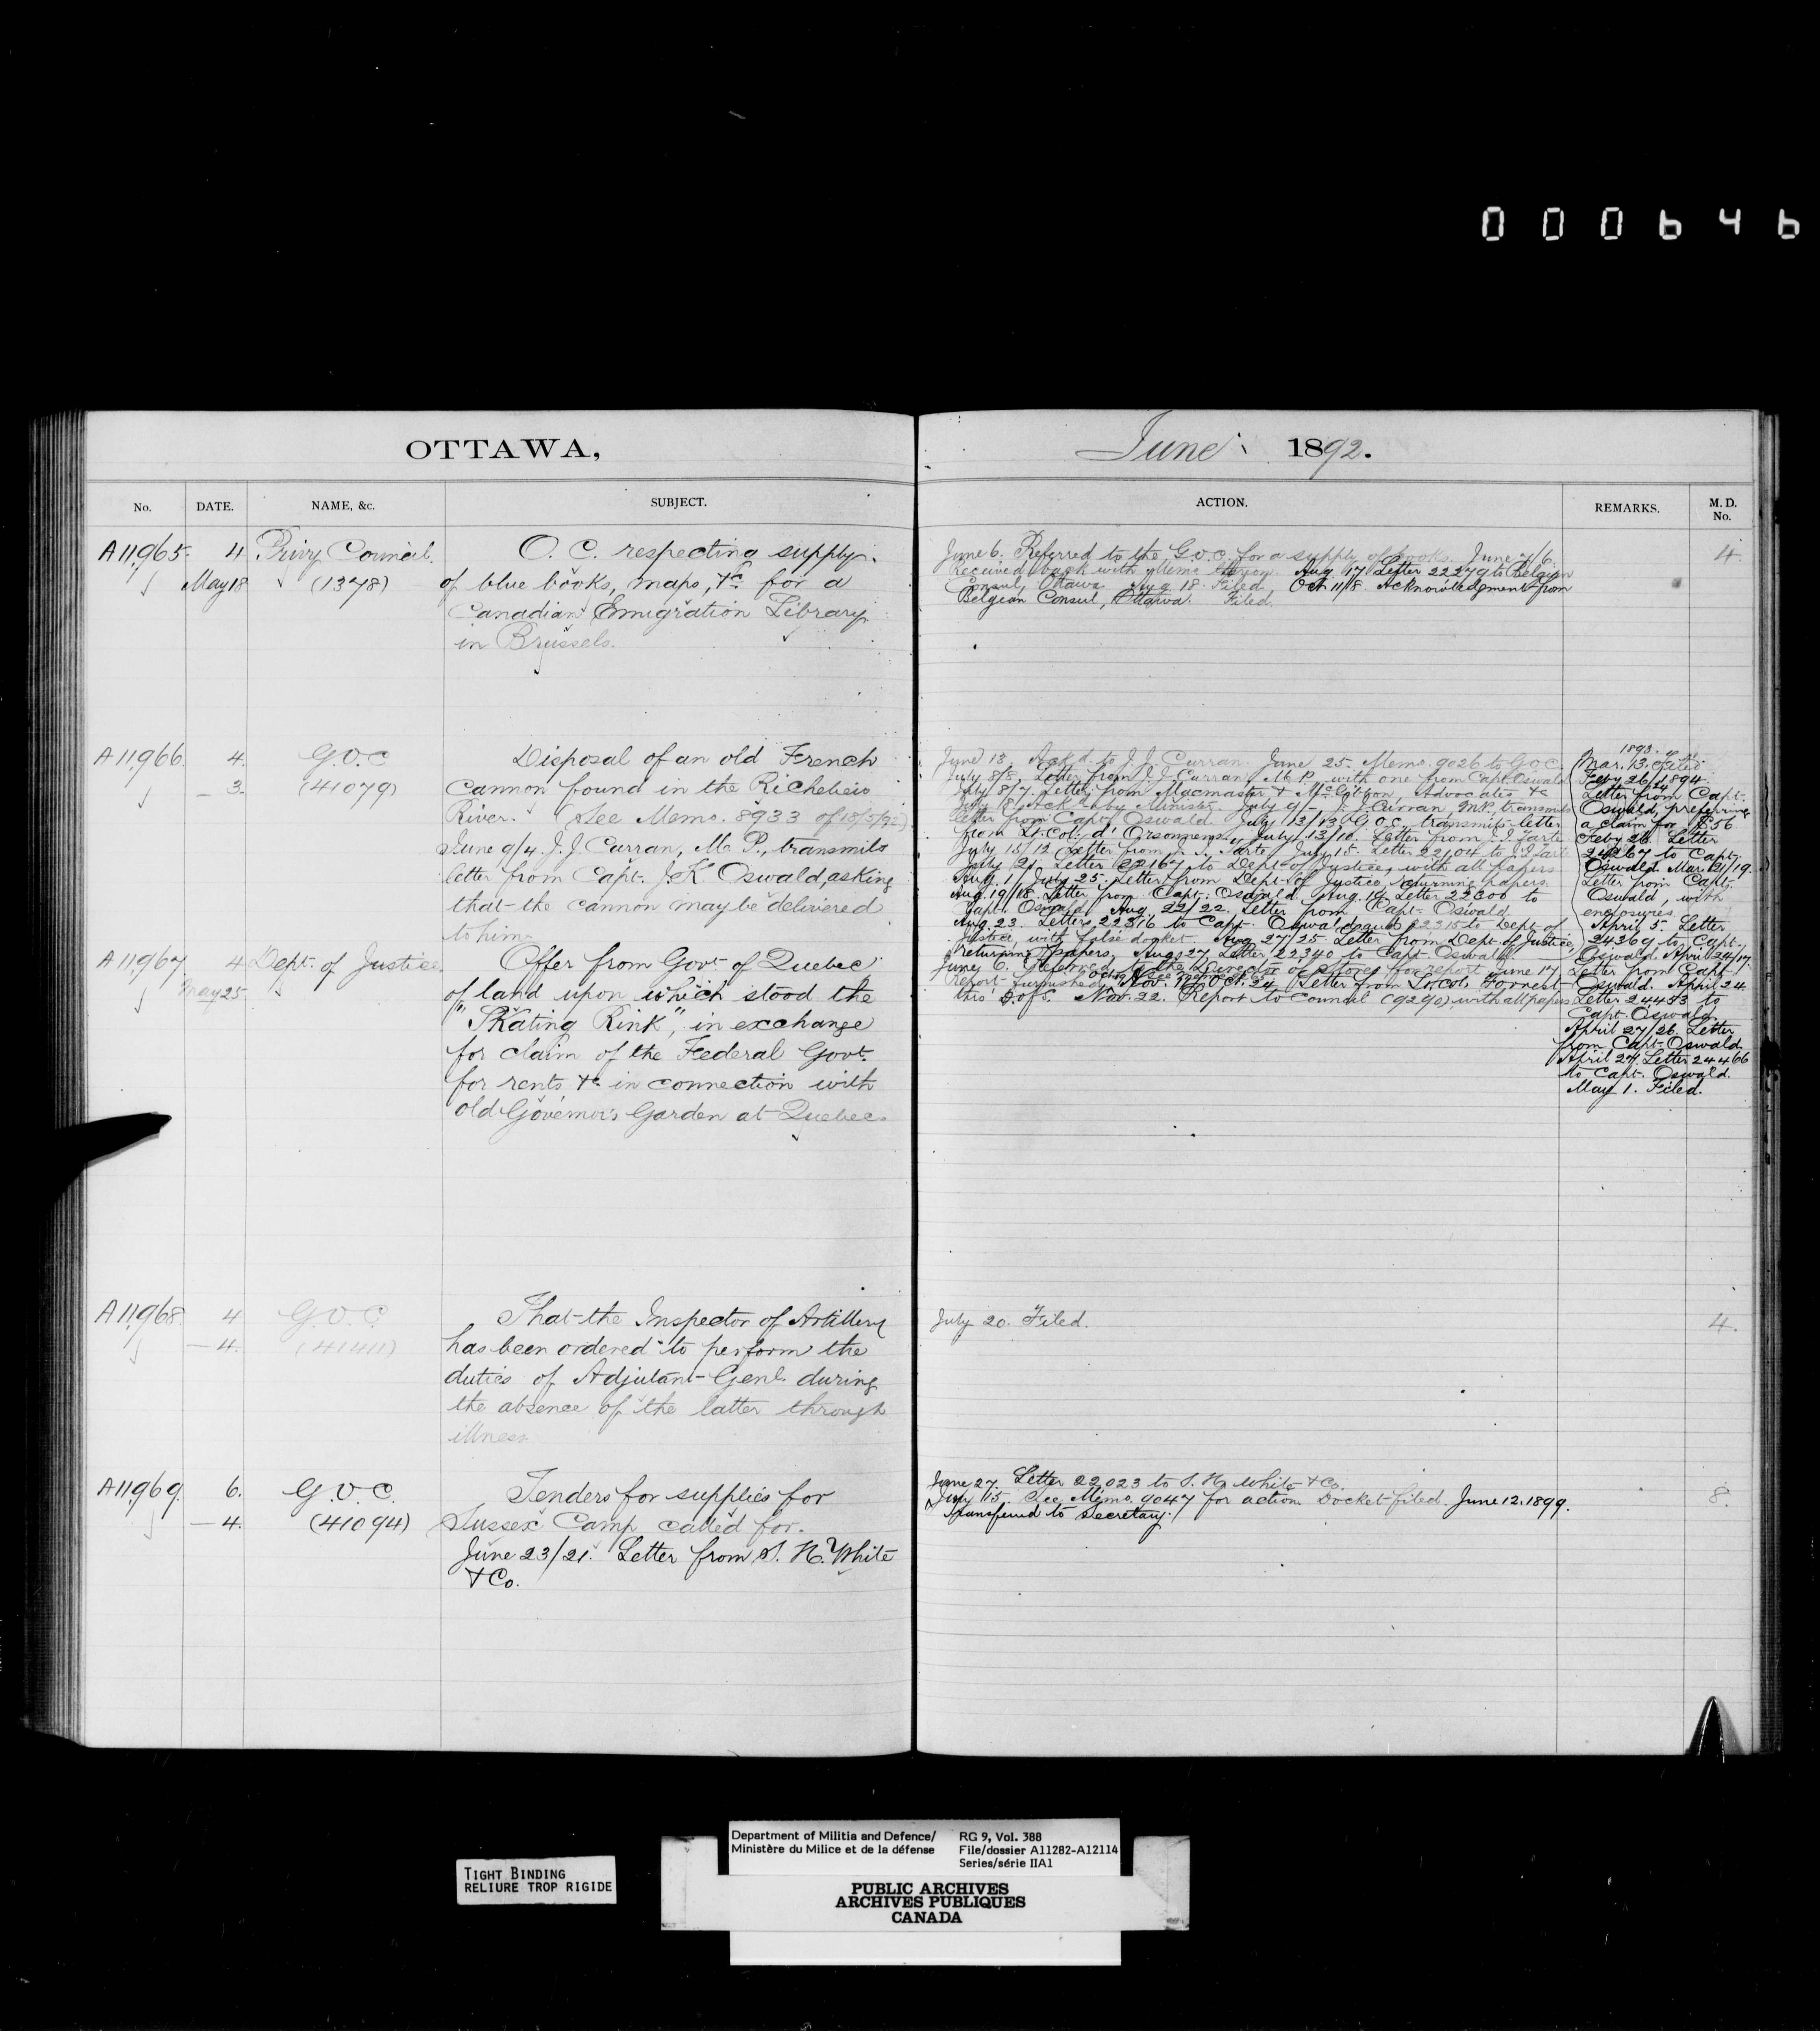 000646
OTTAWA,
June 1892.
No. DATE. NAME, &c. SUBJECT. ACTION. REMARKS. M. D. No.
A11965. 4. Privy Council. O. C. respecting supply
May 18 (1378) of blue books, maps, &c for a
Canadian Emigration Library
in Brussels.
June 6. Referred to the G.O.C. for a supply of books. June 7/6.
Received back with Memo thereon. Aug 17 Letter 22279 to Belgian
Consul, Ottawa. Aug 18. Filed. Oct 11/8 Acknowledgment from
Belgian Consul, Ottawa. Filed.
4.
A11966. 4. G.O.C Disposal of an old French
— 3. (41079) cannon found in the Richelieu
River. (See Memo. 8933 of 18/5/92)
June 9/4. J. J. Curran, M. P., transmits
letter from Capt. J. K Oswald, asking
that the cannon may be delivered
to him.
June 13. Ack'd to J. J. Curran. June 25. Memo. 9026 to G.O.C.
July 8/8. Letter from J. J. Curran M. P. with one from Capt. Oswald
July 8/7. Letter from Macmaster & McGibbon, Advocates &c
July 18. Ack'd by Minister. July 9/- J. J. Curran, M.P., transmits
letter from Capt. Oswald. July 13/13 G.O.C. transmits letter
from Lt. Col. d'Orsonnens. July 13/10. Letter from J. I. Tarte
July 15/12 Letter from J. I. Tarte. July 15. Letter 22104 to J. I. Tarte
July 21. Letter 22167 to Dept. of Justice, with all papers
Aug. 1/July 25. Letter from Dept. of Justice, returning papers.
Aug. 19/18. Letter from Capt. Oswald. Aug. 19. Letter 22300 to
Capt. Oswald. Aug. 22/22. Letter from Capt. Oswald
Aug. 23. Letters 22316 to Capt. Oswald and 22315 to Dept. of
Justice, with false docket. Aug. 27/25. Letter from Dept. of Justice,
returning papers. Aug. 27. Letter 22340 to Capt. Oswald
1893.
Mar. 13. Filed
Feby 26/1894.
Letter from Capt.
Oswald, preferring
a claim for $56
Feby 26. Letter
24267 to Capt.
Oswald. Mar. 21/19.
Letter from Capt.
Oswald, with
enclosures.
April 5. Letter
24369 to Capt.
Oswald. April 24/17.
Letter from Capt.
Oswald. April 24
Letter 24453 to
Capt. Oswald.
April 27/26. Letter
from Capt. Oswald
April 27. Letter 24466
to Capt. Oswald.
May 1. Filed.
A11967. 4. Dept. of Justice. Offer from Govt. of Quebec
May 25 of land upon which stood the
"Skating Rink", in exchange
for claim of the Federal Govt.
for rents &c in connection with
old Governor's Garden at Quebec.
June 6. Referred to the Director of Stores for report. June 17.
Report furnished. Nov. Oct. 24 Letter from Lt. Col. Forrest
thro' D. of S. Nov. 22. Report to Council (9290), with all papers
A11968. 4. G.O.C. That the Inspector of Artillery
— 4. has been ordered to perform the
duties of Adjutant-Genl. during
the absence of the latter through
illness
July 20. Filed.
4.
A11969. 6. G.O.C. Tenders for supplies for
— 4. (41094) Sussex Camp called for.
June 23/21. Letter from S. H. White
& Co.
June 27. Letter 22,023 to S. H. White & Co.
July 15. See Memo. 9047 for action. Docket filed. June 12. 1899.
Transferred to Secretary.
8.
TIGHT BINDING
RELIURE TROP RIGIDE
Department of Militia and Defence/
Ministère du Milice et de la défense
RG 9, Vol. 388
File/dossier A11282-A12114
Series/série IIA1
PUBLIC ARCHIVES
ARCHIVES PUBLIQUES
CANADA